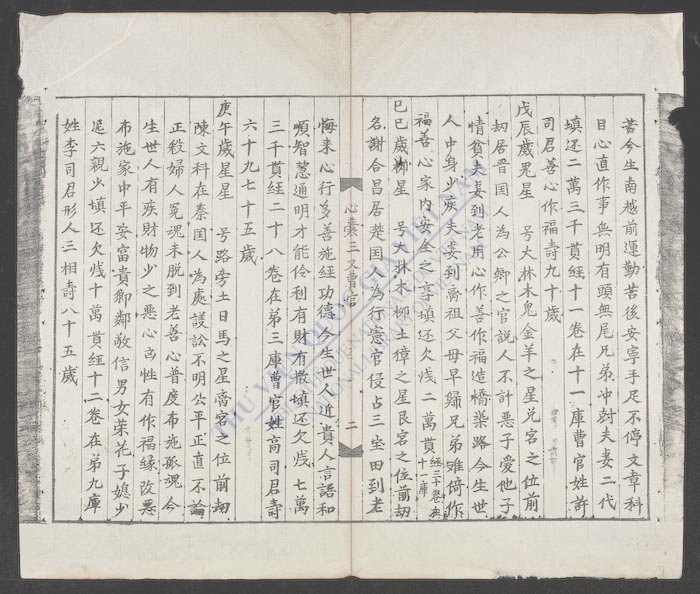 苦今生南越前運勤苦後安寧手足不停文章科
目心直作事無明有頭無尾兄弟冲尅夫妻二代
填还二萬三千貫經十一卷在十一庫曹官姓許
司君善心作福壽九十歲
戊辰歲鬼星 号大林木鬼金羊之星兌宮之位前
刼居晋国人為公卿之官説人不計悪子愛他子
情貧夫妻到老用心作善作福造橋築路今生世
人中身少疾夫妻到喬祖父母早歸兄弟难倚作
福善心家内安全之享填还欠残二萬貫經三十卷在十一庫
己巳歲柳星 号大林木柳土獐之星艮宮之位前刼
名謝合昌居楚国人為行憲官侵占三宝田到老
心囊三又曹官 二
悔来心行多善施經功德今生世人近貴人言語和
順智慧通明才能伶利有財有散填还欠残七萬
三千貫經二十八卷在第三庫曹官姓高司君壽
六十九七十五歲
庚午歲星星 号路旁土日馬之星离宮之位前刼
陳文科在秦国人為處議訟不明公平正直不論
正殺婦人冤魂未脱到老善心普度布施孤魂今
生世人有疾財物少之悪心高性有作福縁改悪
布施家中平安富貴鄉鄰敬信男女茱花子媳少
延六親少填还欠残十萬貫經十二卷在第九庫
姓李司君形人三相壽八十五歲